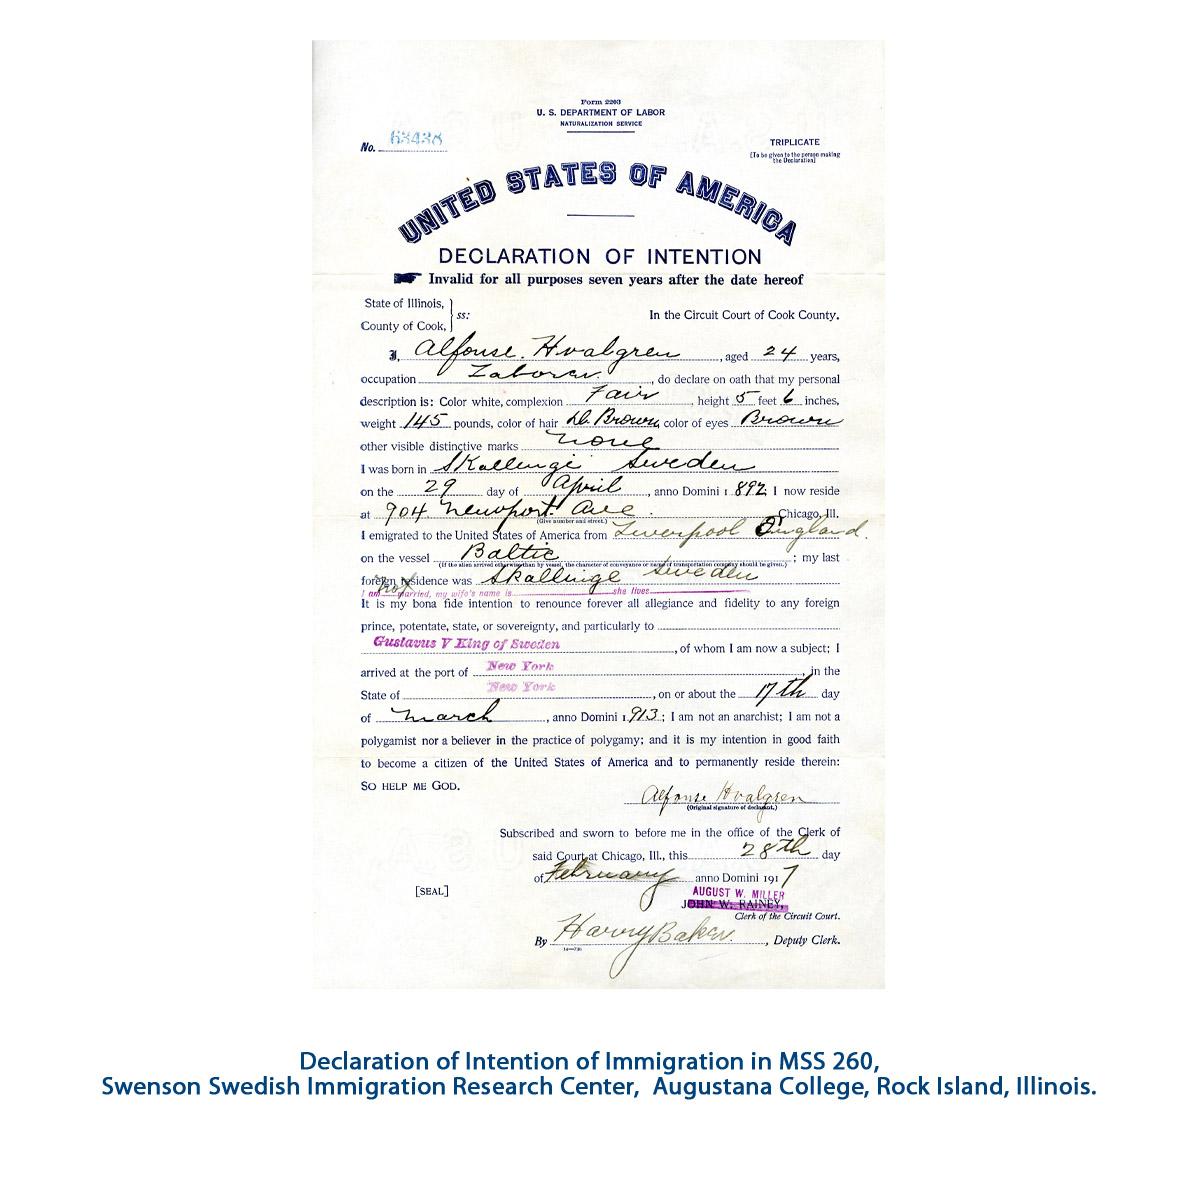 Form 2203
U. S. DEPARTMENT OF LABOR
NATURALIZATION SERVICE
No. 63438
TRIPLICATE
[To be given to the person making the Declaration]
UNITED STATES OF AMERICA
DECLARATION OF INTENTION
Invalid for all purposes seven years after the date hereof
State of Illinois,
County of Cook,
ss:
In the Circuit Court of Cook County.
I, Alfonse Hvalgren, aged 24 years,
occupation Laborer, do declare on oath that my personal
description is: Color white, complexion Fair, height 5 feet 6 inches,
weight 145 pounds, color of hair D. Brown, color of eyes Brown
other visible distinctive marks none
I was born in Skallinge Sweden
on the 29 day of April, anno Domini 1 892, I now reside
at 904 Newport Ave. Chicago, Ill.
(Give number and street.)
I emigrated to the United States of America from Liverpool England.
on the vessel Baltic; my last
(If the alien arrived otherwise than by vessel, the character of conveyance or name of transportation company should be given.)
foreign residence was Skallinge Sweden
I am not married, my wife's name is she lives
It is my bona fide intention to renounce forever all allegiance and fidelity to any foreign
prince, potentate, state, or sovereignty, and particularly to
Gustavus V King of Sweden, of whom I am now a subject; I
arrived at the port of New York, in the
State of New York, on or about the 17th day
of March, anno Domini 1 913; I am not an anarchist; I am not a
polygamist nor a believer in the practice of polygamy; and it is my intention in good faith
to become a citizen of the United States of America and to permanently reside therein:
SO HELP ME GOD.
Alfonse Hvalgren
(Original signature of declarant.)
Subscribed and sworn to before me in the office of the Clerk of
said Court at Chicago, Ill., this 28th day
of February anno Domini 191 7
[SEAL]
AUGUST W. MILLER
JOHN W. RAINEY,
Clerk of the Circuit Court.
By Harry Baker, Deputy Clerk.
Declaration of Intention of Immigration in MSS 260,
Swenson Swedish Immigration Research Center, Augustana College, Rock Island, Illinois.